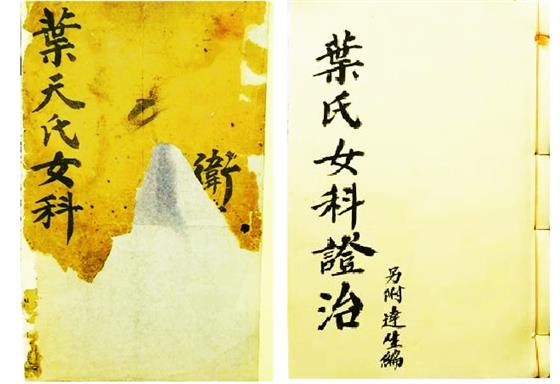 葉天氏女科
衛
葉氏女科證治
另附達生編